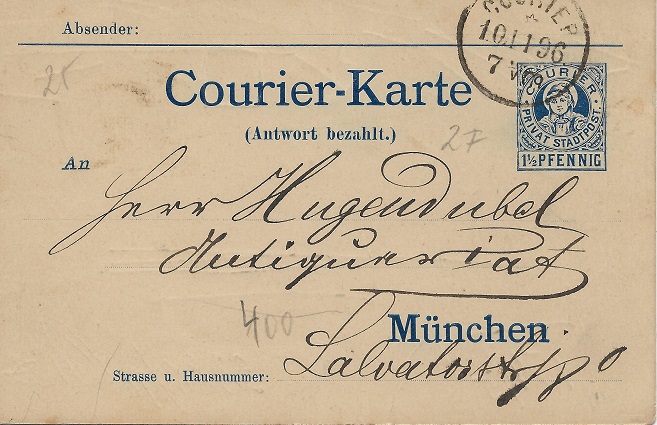 Absender:
COURIER
10.11.96
7
25
Courier-Karte
COURIER
PRIVAT STADTPOST.
1½ PFENNIG
(Antwort bezahlt.)
27
An
Herr Hugendubel
Antiquariat
400
München
Strasse u. Hausnummer:
Salvatorstr